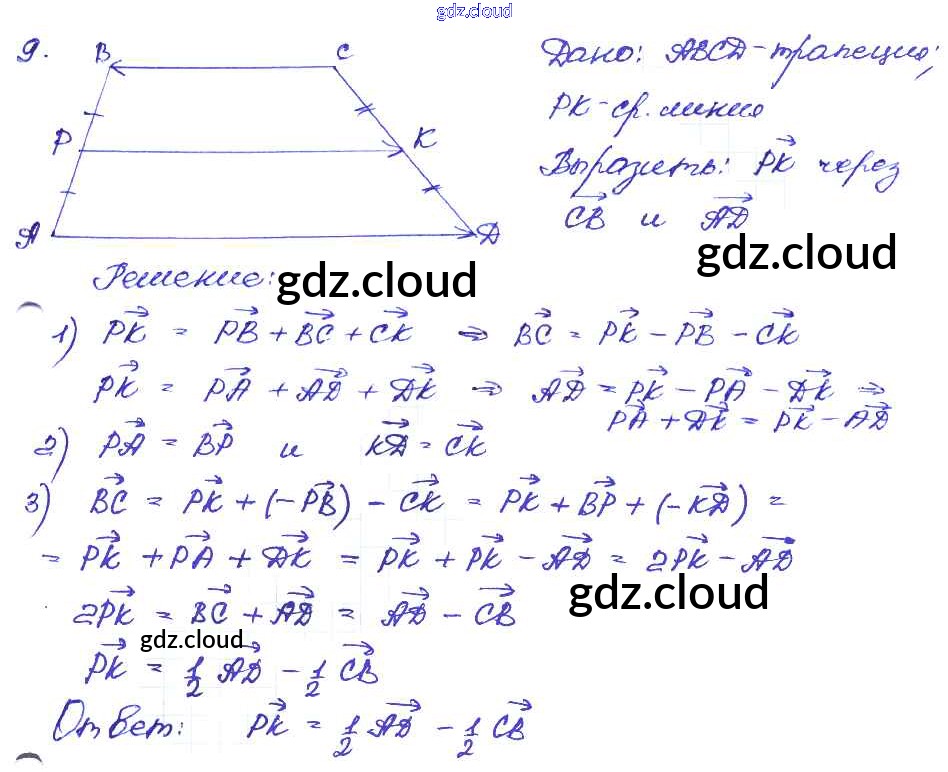 gdz.cloud
9.
B C
P K
A D
Дано: ABCD - трапеция;
PK - ср. линия
Выразить: PK через
CB и AD
gdz.cloud
Решение: gdz.cloud
1) PK = PB + BC + CK ⇒ BC = PK - PB - CK
PK = PA + AD + DK ⇒ AD = PK - PA - DK ⇒
PA + DK = PK - AD
2) PA = BP и KD = CK
3) BC = PK + (-PB) - CK = PK + BP + (-KD) =
= PK + PA + DK = PK + PK - AD = 2PK - AD
2PK = BC + AD = AD - CB
gdz.cloud
gdz.cloud
PK = 1/2 AD - 1/2 CB
Ответ: PK = 1/2 AD - 1/2 CB